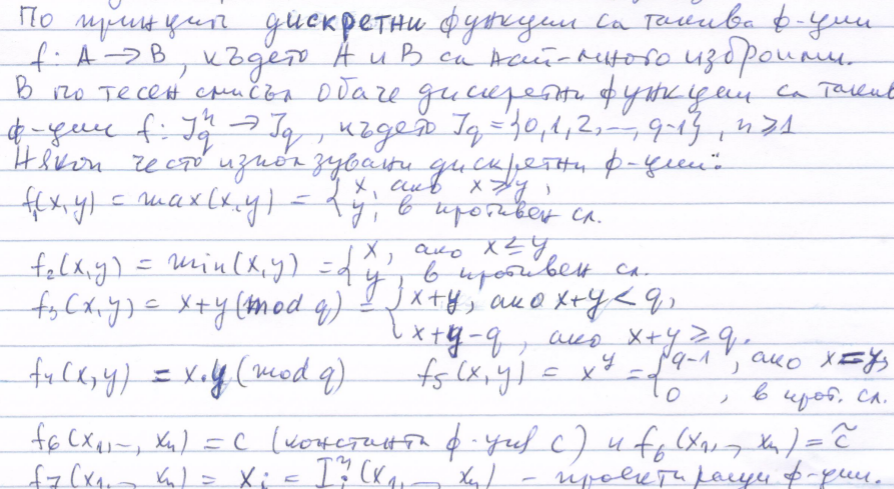 По принцип дискретни функции са такива ф-ции
f: A → B, където A и B са най-много изброими.
В по тесен смисъл обаче дискретни функции са такив
ф-ции f: J_q^n → J_q, където J_q = {0,1,2,...,q-1}, n ≥ 1
Някои често използувани дискретни ф-ции:
f₁(x,y) = max(x,y) = { x, ако x ≥ y, 
y, в противен сл.
f₂(x,y) = min(x,y) = { x, ако x ≤ y
y, в противен сл.
f₃(x,y) = x+y (mod q) = { x+y, ако x+y < q,
x+y-q, ако x+y ≥ q.
f₄(x,y) = x.y (mod q) f₅(x,y) = x^y = { q-1, ако x=y,
0, в прот. сл.
f₆(x₁,..,xₙ) = c (константа ф-ция c) и f₆(x₁,..,xₙ) = c̃
f₇(x₁,..,xₙ) = x_i = I_i^n(x₁,..,xₙ) - проектиращи ф-ции.